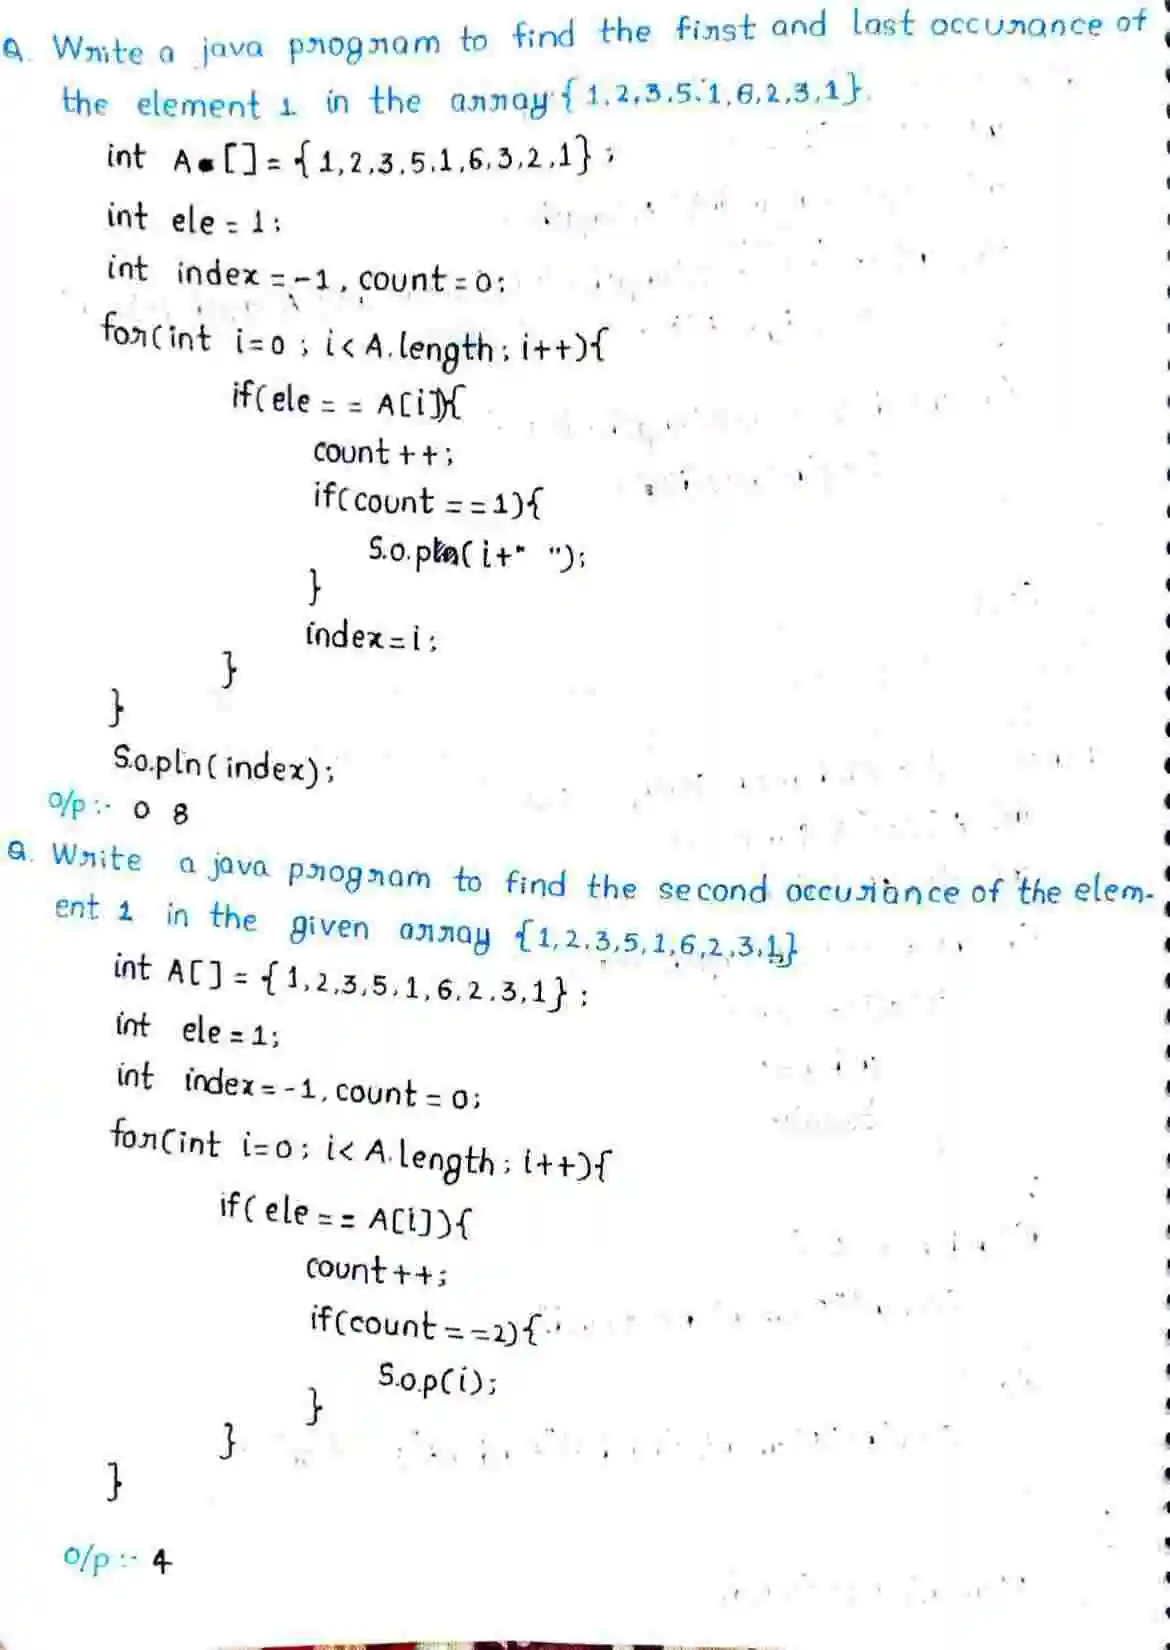 Q. Write a java program to find the first and last occurance of
the element 1 in the array {1,2,3,5,1,6,2,3,1}.
int A[] = {1,2,3,5,1,6,3,2,1};
int ele = 1;
int index = -1, count = 0;
for(int i=0; i< A.length; i++){
if(ele == A[i]){
count ++;
if(count ==1){
S.o.p(i+" ");
}
index=i;
}
}
S.o.pln(index);
O/p :- 0 8
Q. Write a java program to find the second occuriance of the elem-
ent 1 in the given array {1,2,3,5,1,6,2,3,1}
int A[] = {1,2,3,5,1,6,2,3,1};
int ele = 1;
int index = -1, count = 0;
for(int i=0; i< A.length; i++){
if(ele == A[i]){
count++;
if(count ==2){
S.o.p(i);
}
}
}
O/p :- 4